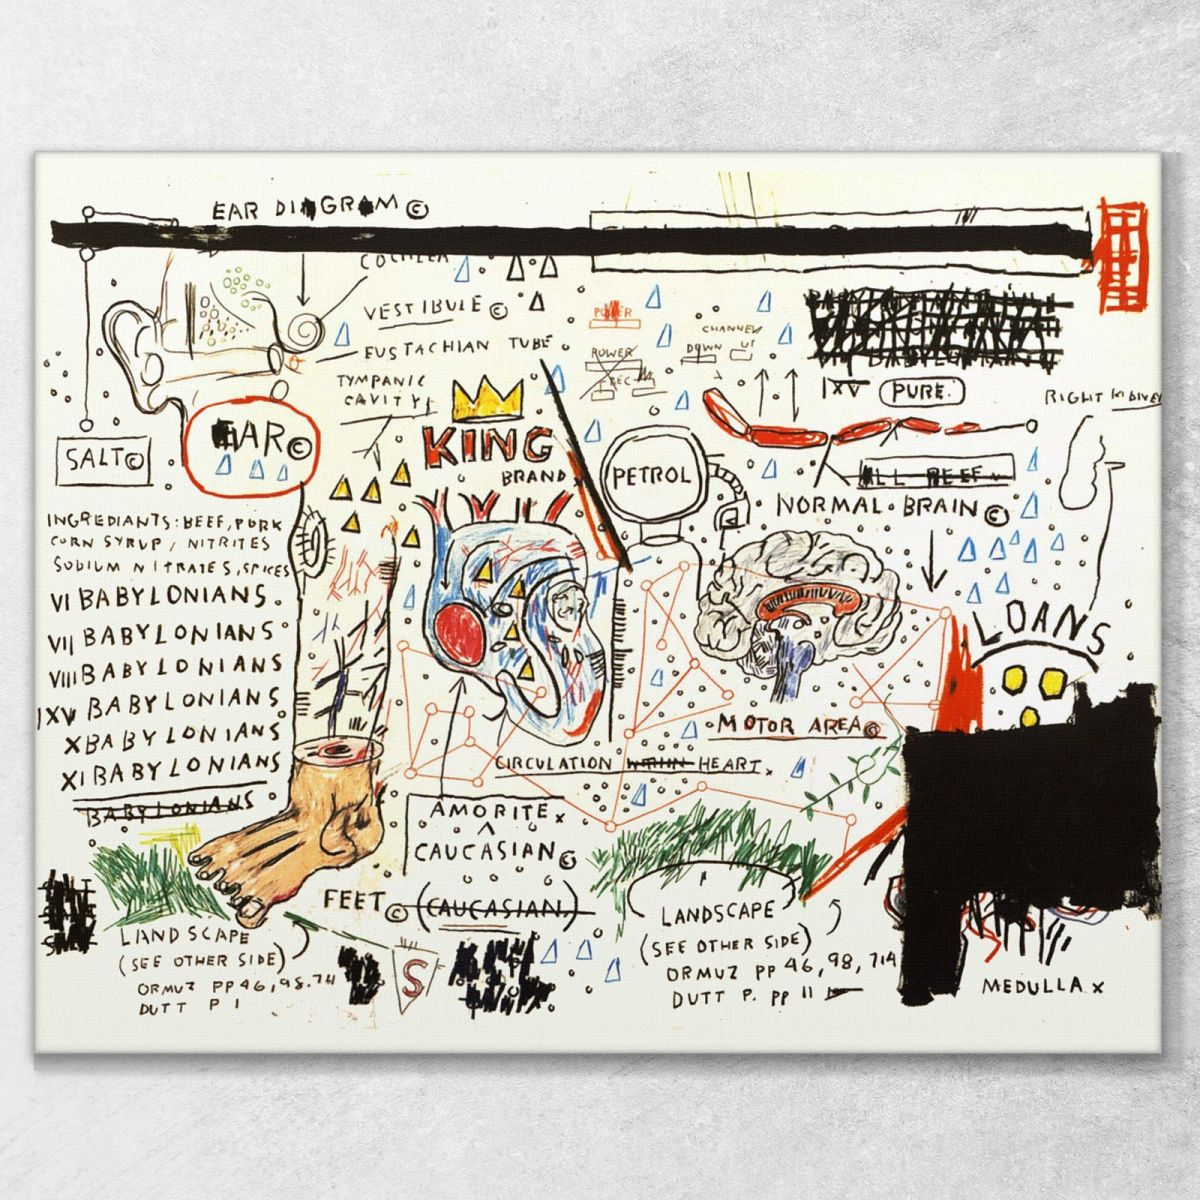 EAR DIAGRAM ©
COCHLEA
VESTIBULE ©
EUSTACHIAN TUBE
TYMPANIC
CAVITY
EAR ©
SALT ©
INGREDIANTS: BEEF, PORK
CORN SYRUP, NITRITES
SODIUM NITRATES, SPICES
VI BABYLONIANS.
VII BABYLONIANS
VIII BABYLONIANS
IXV BABYLONIANS
X BABYLONIANS
XI BABYLONIANS
BABYLONIANS
LANDSCAPE
(SEE OTHER SIDE)
ORMUZ PP 46, 98, 714
DUTT P 1
FEET ©
KING
BRAND
POWER
POWER
REC
CHANNEL
DOWN UP
PETROL
IXV PURE.
ALL BEEF
NORMAL BRAIN ©
RIGHT
LOANS
MOTOR AREA ©
CIRCULATION WITHIN HEART x
AMORITE x
^
CAUCASIAN ©
(CAUCASIAN.)
S
LANDSCAPE
(SEE OTHER SIDE)
ORMUZ PP 46, 98, 714
DUTT P. PP 11
MEDULLA x